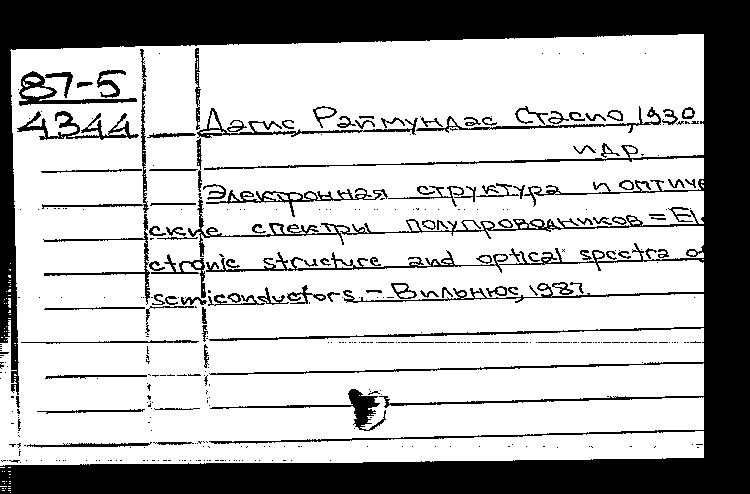 87-5
4344
Дагис, Раймундас Стасио, 1930
и др.
Электронная структура и оптиче
ские спектры полупроводников = Ele
ctronic structure and optical spectra of
semiconductors. - Вильнюс, 1987.